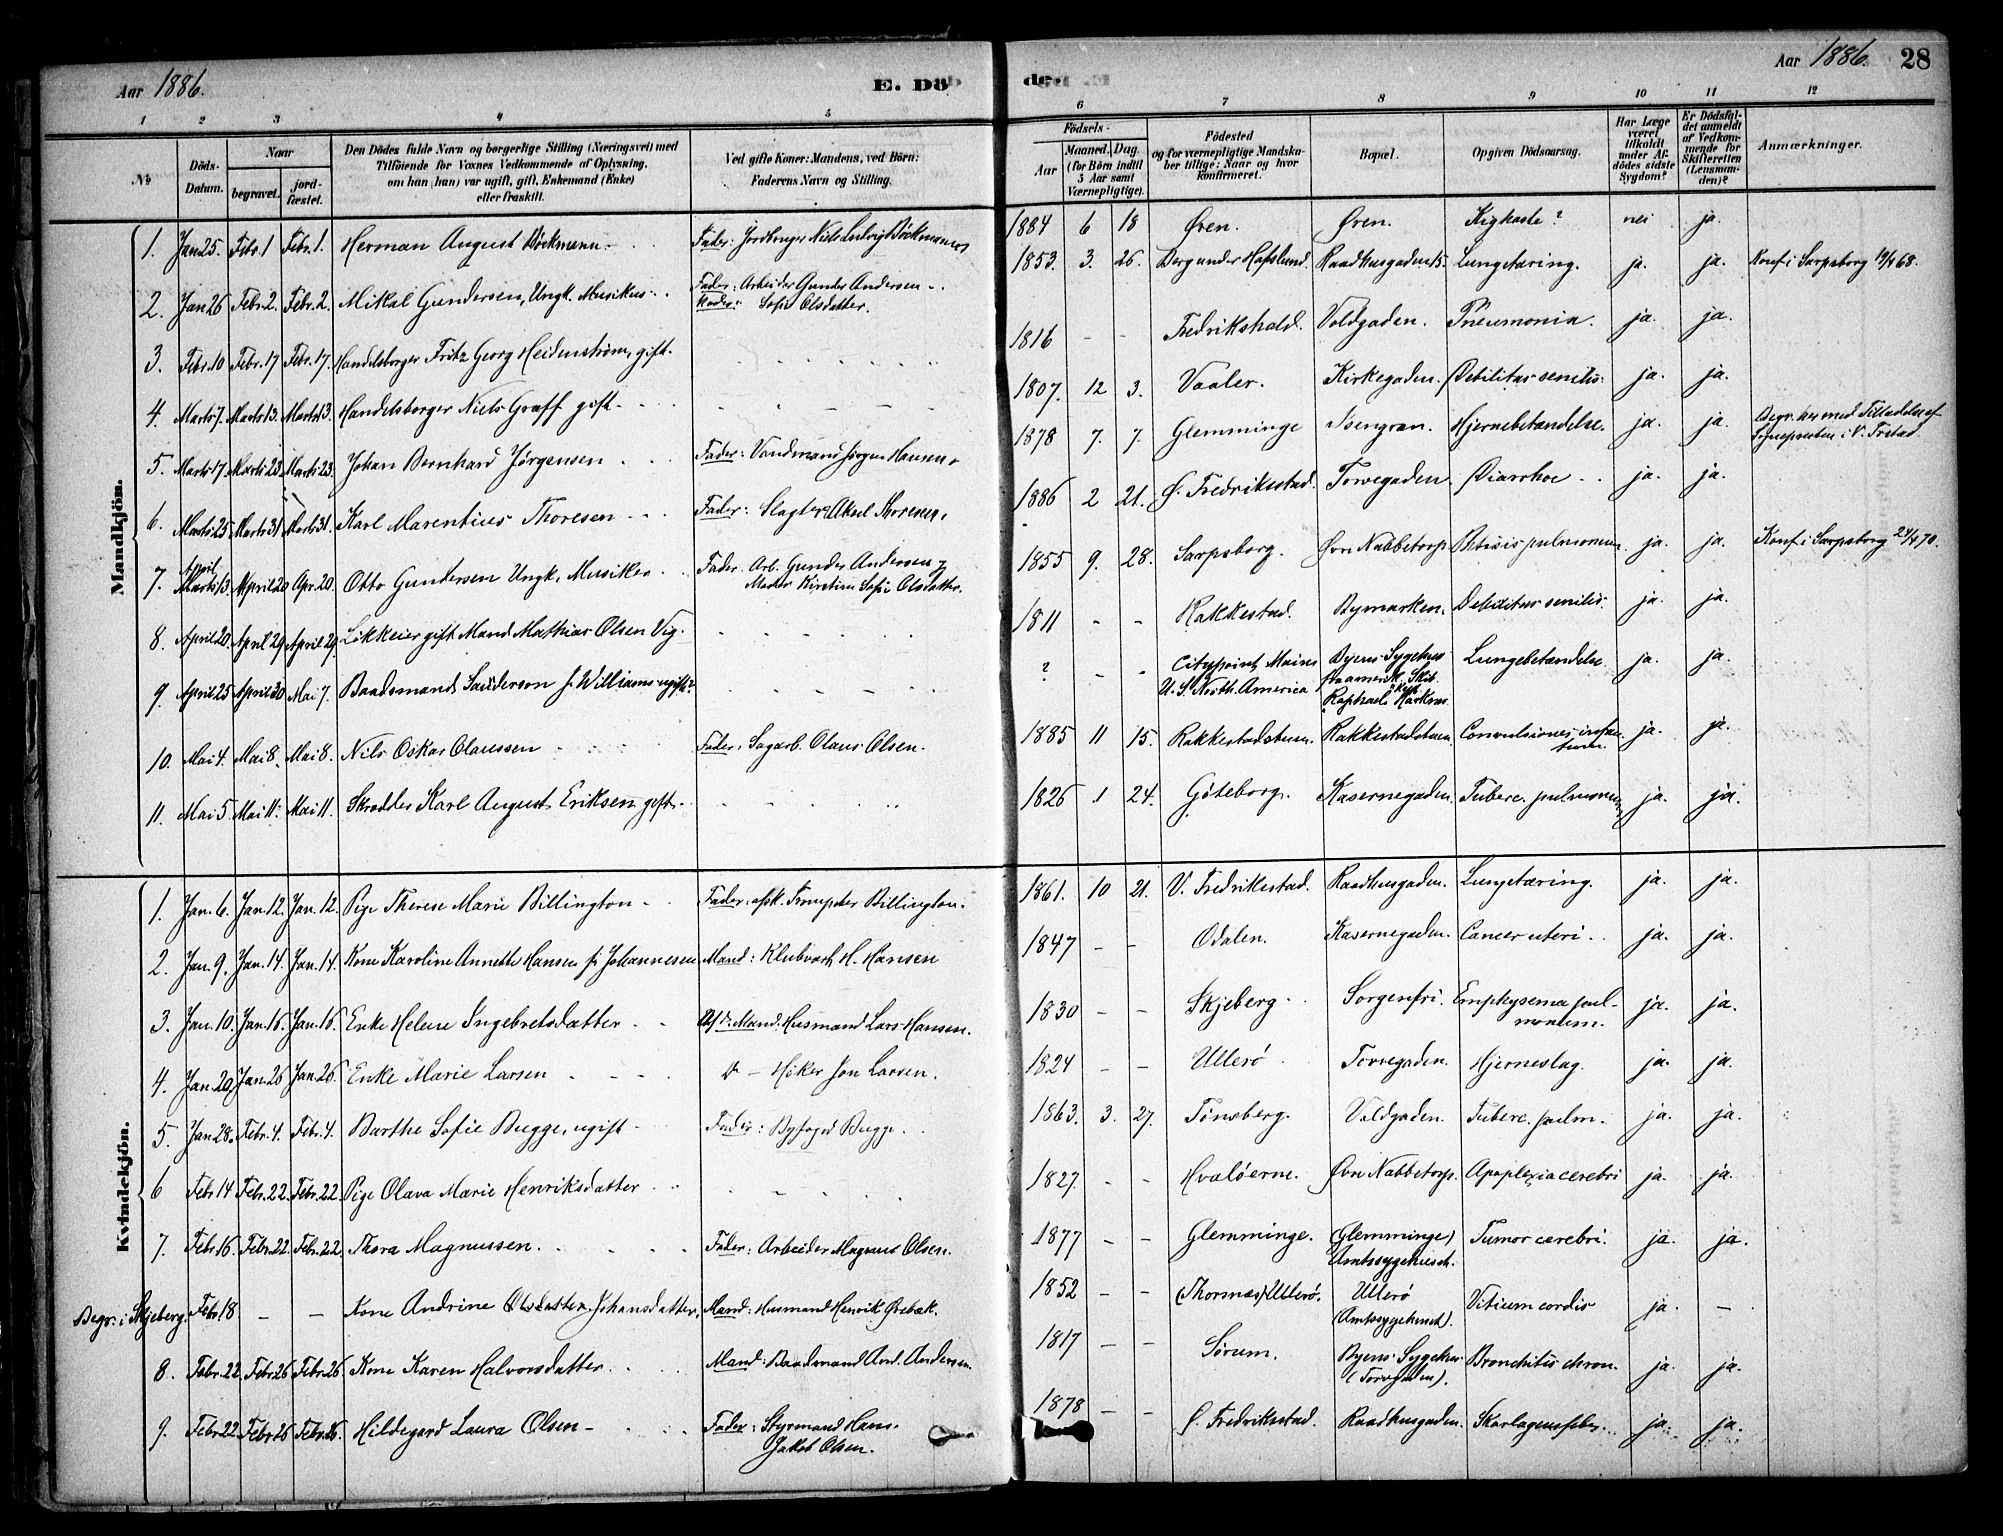 Aar 1886. E. Dö
de. Aar 1886. 28
1 2 3 4 5 6 7 8 9 10 11 12
№ Döds-Datum. Naar begravet. jordfæstet. Den Dödes fulde Navn og borgerlige Stilling (Næringsvei) med Tilföiende for Voxnes Vedkommende af Oplysning, om han (hun) var ugift, gift, Enkemand (Enke) eller fraskilt. Ved gifte Koner: Mandens, ved Börn: Faderens Navn og Stilling.
Födsels- Aar Maaned. Dag. (for Börn indtil 5 Aar samt Værnepligtige). Födested og for værnepligtige Mandskaber tillige: Naar og hvor konfirmeret. Bopæl. Opgiven Dödsaarsag. Har Læge været tilkaldt under Afdödes sidste Sygdom? Er Dödsfaldet anmeldt af Vedkommende for Skifteretten (Lensmanden)? Anmærkninger.
Mandkjön.
1. Jan 25. Febr. 1 Febr. 1. Herman August Böckmann Fader: Jordbruger Niels Ludvig Böckmann 1884 6 18 Øren. Øren. Kighoste? nei ja.
2. Jan 26 Febr. 2. Febr. 2. Mikal Gundersen, Ungk. Musikus Fader: Arbeider Gunder Andersen Moder: Sofie Olsdatter. 1853. 3. 26. Borg under Hafslund. Raadhusgaden 15. Lungetæring. ja. ja. Konf. i Sarpsborg 68.
3. Febr. 10 Febr. 17 Febr. 17. Handelsborger Fritz Georg Heidenstrøm, gift. 1816 - - Fredrikshald. Voldgaden. Pneumonia. ja. ja.
4 Marts 7. Marts 13. Marts 13. Handelsborger Niels Graff gift. 1807. 12 3. Vaaler. Kirkegaden. Debilitas senilis. ja. ja.
5. Marts 17. Marts 23. Marts 23. Johan Bernhard Jörgensen Fader: Vandmand Jörgen Hansen. 1878 7. 7. Glemminge Isengran. Hjernebetændelse. ja. ja. Begr. her med Tilladelse af Sognepresten i V. Frstad.
6. Marts 25 Marts 31 Marts 31. Karl Marentius Thoresen Fader: Slagter Aksel Thoresen. 1886 2 21. Ø. Fredriksstad. Torvegaden. Diarrhoe ja. ja.
7. April Marts 13. April 20 Apr. 20. Otto Gundersen Ungk. Musiker Fader. Arb. Gunder Andersen Moder Kirstine Sofie Olsdatter. 1855 9. 28. Sarpsborg. Øvr. Nabbetorp Phtisis pulmonum. ja. ja. Konf. i Sarpsborg 70.
8. April 20. April 29 April 29. Likkeier gift Mand Mathias Olsen Vig. 1811 - - Rakkestad. Bymarken. Debilitas senilis. ja. ja.
9. April 25 April 30 Mai 7. Baadsmand Sanderson J. Williams ugift? ? - - Citypoint, Maine U. S. North. America Byens Sygehus fra amerik. Skib Raphael Lungebetændelse ja. ja.
10. Mai 4. Mai 8. Mai 8. Nils Oskar Olaussen Fader: Sagarb. Olaus Olsen. 1885 11 15. Rakkestadstuen. Rakkestadstuen. Convulsiones infantum. ja. ja.
11. Mai 5 Mai 11. Mai 11. Skrædder Karl August Eriksen gift. 1826 1 24. Göteborg. Kasernegaden. Tuberc. pulmonum. ja. ja.
Kvindekjön.
1. Jan. 6. Jan. 12. Jan. 12. Pige Therese Marie Billington Fader: afsk. Trompeter Billington. 1861. 10 21. V. Fredriksstad. Raadhusgaden. Lungetæring. ja. ja.
2. Jan. 9. Jan. 14. Jan. 14. Kone Karoline Annette Hansen f. Johannesen Mand: Klubvert H. Hansen 1847 - - Odalen. Kasernegaden. Cancer uteri. ja. ja.
3. Jan. 10. Jan. 16. Jan. 16. Enke Helene Ingebretsdatter Afd. Mand. Husmand Lars Hansen. 1830 - - Skjeberg. Sorgenfri. Emphysema pulmonum. ja. ja.
4. Jan. 20 Jan. 26 Jan. 26. Enke Marie Larsen — Höker Jon Larsen. 1824 - - Ullerø Torvegaden. Hjerneslag. ja. ja.
5. Jan. 28. Febr. 4. Febr. 4. Barthe Sofie Bugge, ugift Fader: Byfoged Bugge. 1863. 3. 27. Tønsberg. Voldgaden. Tuberc. pulm. ja. ja.
6 Febr 14 Febr. 22. Febr. 22. Pige Olava Marie Henriksdatter 1827. - - Hvaløerne. Øvr. Nabbetorp. Apoplexia cerebri ja. ja.
7. Febr. 16. Febr. 22. Febr. 22. Thora Magnussen. Fader: Arbeider Magnus Olsen. 1877 - - Glemminge. (Glemminge) Amtssygehuset. Tumor cerebri. ja. ja.
Begr. i Skjeberg. Febr. 18 — — Kone Andrine Johansdatter. Mand: Husmand Henrik Ørebæk. 1852 - - (Thornæs) Ullerø. Ullerø (Amtssygehuset). Vitium cordis ja. —
8. Febr. 22 Febr. 26 Febr. 26. Kone Karen Halvorsdatter Mand: Baadmand And. Andersen. 1817 - - Sørum. Byens Sygehus (Torvgaden). Bronchitis chron. ja. ja.
9. Febr. 22. Febr. 26 Febr. 26. Hildegard Laura Olsen Fader: Styrmand Hans Jakob Olsen. 1878 - - Ø. Fredriksstad. Raadhusgaden. Skarlagensfeber. ja. ja.